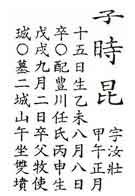 子時昆
字汝壯
甲午正月
十五日生乙未八月八日
卒○配豐川任氏丙申生
戊戌九月二日卒父牧使
珹○墓二城山午坐雙墳